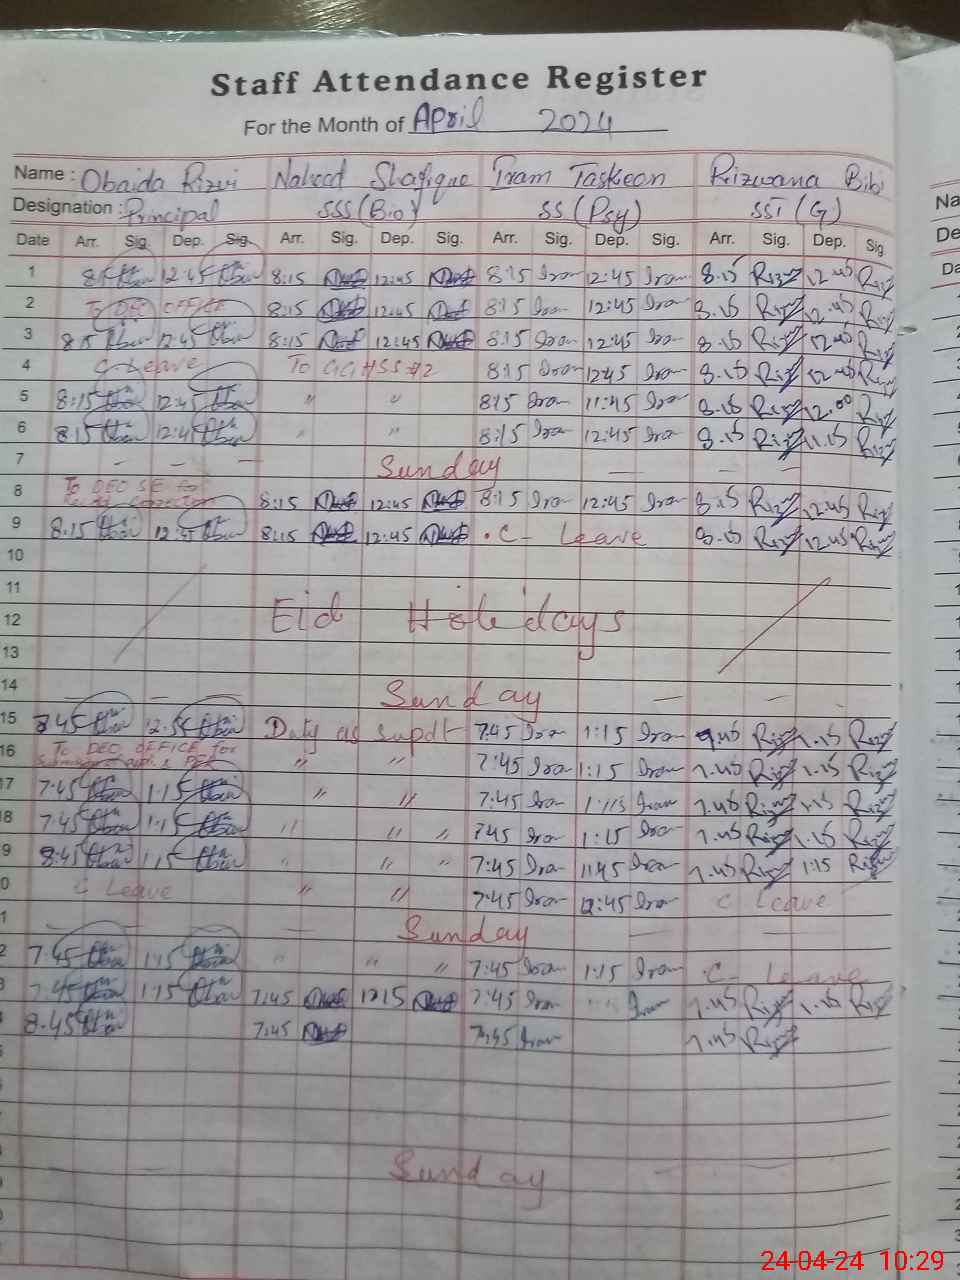 Staff Attendance Register
For the Month of April 2024
Name : Obaida Rizvi Naheed Shafique Iram Taskeen Rizwana Bibi
Designation : Principal SSS (Bio) SS (Psy) SST (G)
Date Arr. Sig. Dep. Sig. Arr. Sig. Dep. Sig. Arr. Sig. Dep. Sig. Arr. Sig. Dep. Sig
1 8:15 12:45 8:15 12:45 8:15 Iram 12:45 Iram 8.15 Riz 12.45 Riz
2 To DEO OFFICE 8:15 12:45 8:15 Iram 12:45 Iram 8.15 Riz 12.45 Riz
3 8:15 12:45 8:15 12:45 8:15 Iram 12:45 Iram 8.15 Riz 12.45 Riz
4 C-Leave To GGHSS #2 8:15 Iram 12:45 Iram 8.15 Riz 12.45 Riz
5 8:15 12:45 " " 8:15 Iram 11:45 Iram 8.15 Riz 12.00 Riz
6 8:15 12:45 " " 8:15 Iram 12:45 Iram 8.15 Riz 11.15 Riz
7 — — — Sunday — — —
8 To DEO SE for 8:15 12:45 8:15 Iram 12:45 Iram 8.15 Riz 12.45 Riz
9 8:15 12:45 8:15 12:45 C- Leave 8.15 Riz 12.45 Riz
10
11
12 Eid Holidays
13
14 — — — Sunday — —
15 12:50 Duty as supdt 7:45 Iram 1:15 Iram Riz 1.15 Riz
16 To DEO OFFICE for " " 7:45 Iram 1:15 Iram 7.45 Riz 1.15 Riz
17 7:45 1:15 " " 7:45 Iram 1:15 Iram 7.45 Riz 1.15 Riz
8 7:45 1:15 " " " 7:45 Iram 1:15 Iram 7.45 Riz 1.15 Riz
9 8:45 1:15 " " " 7:45 Iram 1:45 Iram 7.45 Riz 1:15 Riz
0 C Leave " " 7:45 Iram 12:45 Iram C Leave
1 — — — — Sunday — —
2 7:45 1:15 " " " 7:45 Iram 1:15 Iram C- Leave
3 7:45 1:15 7:45 1:15 7:45 Iram Iram 7.45 Riz 1.15 Riz
8.45 7:45 7:45 Iram 7.45 Riz
Sunday
Na
De
Da
24-04-24 10:29